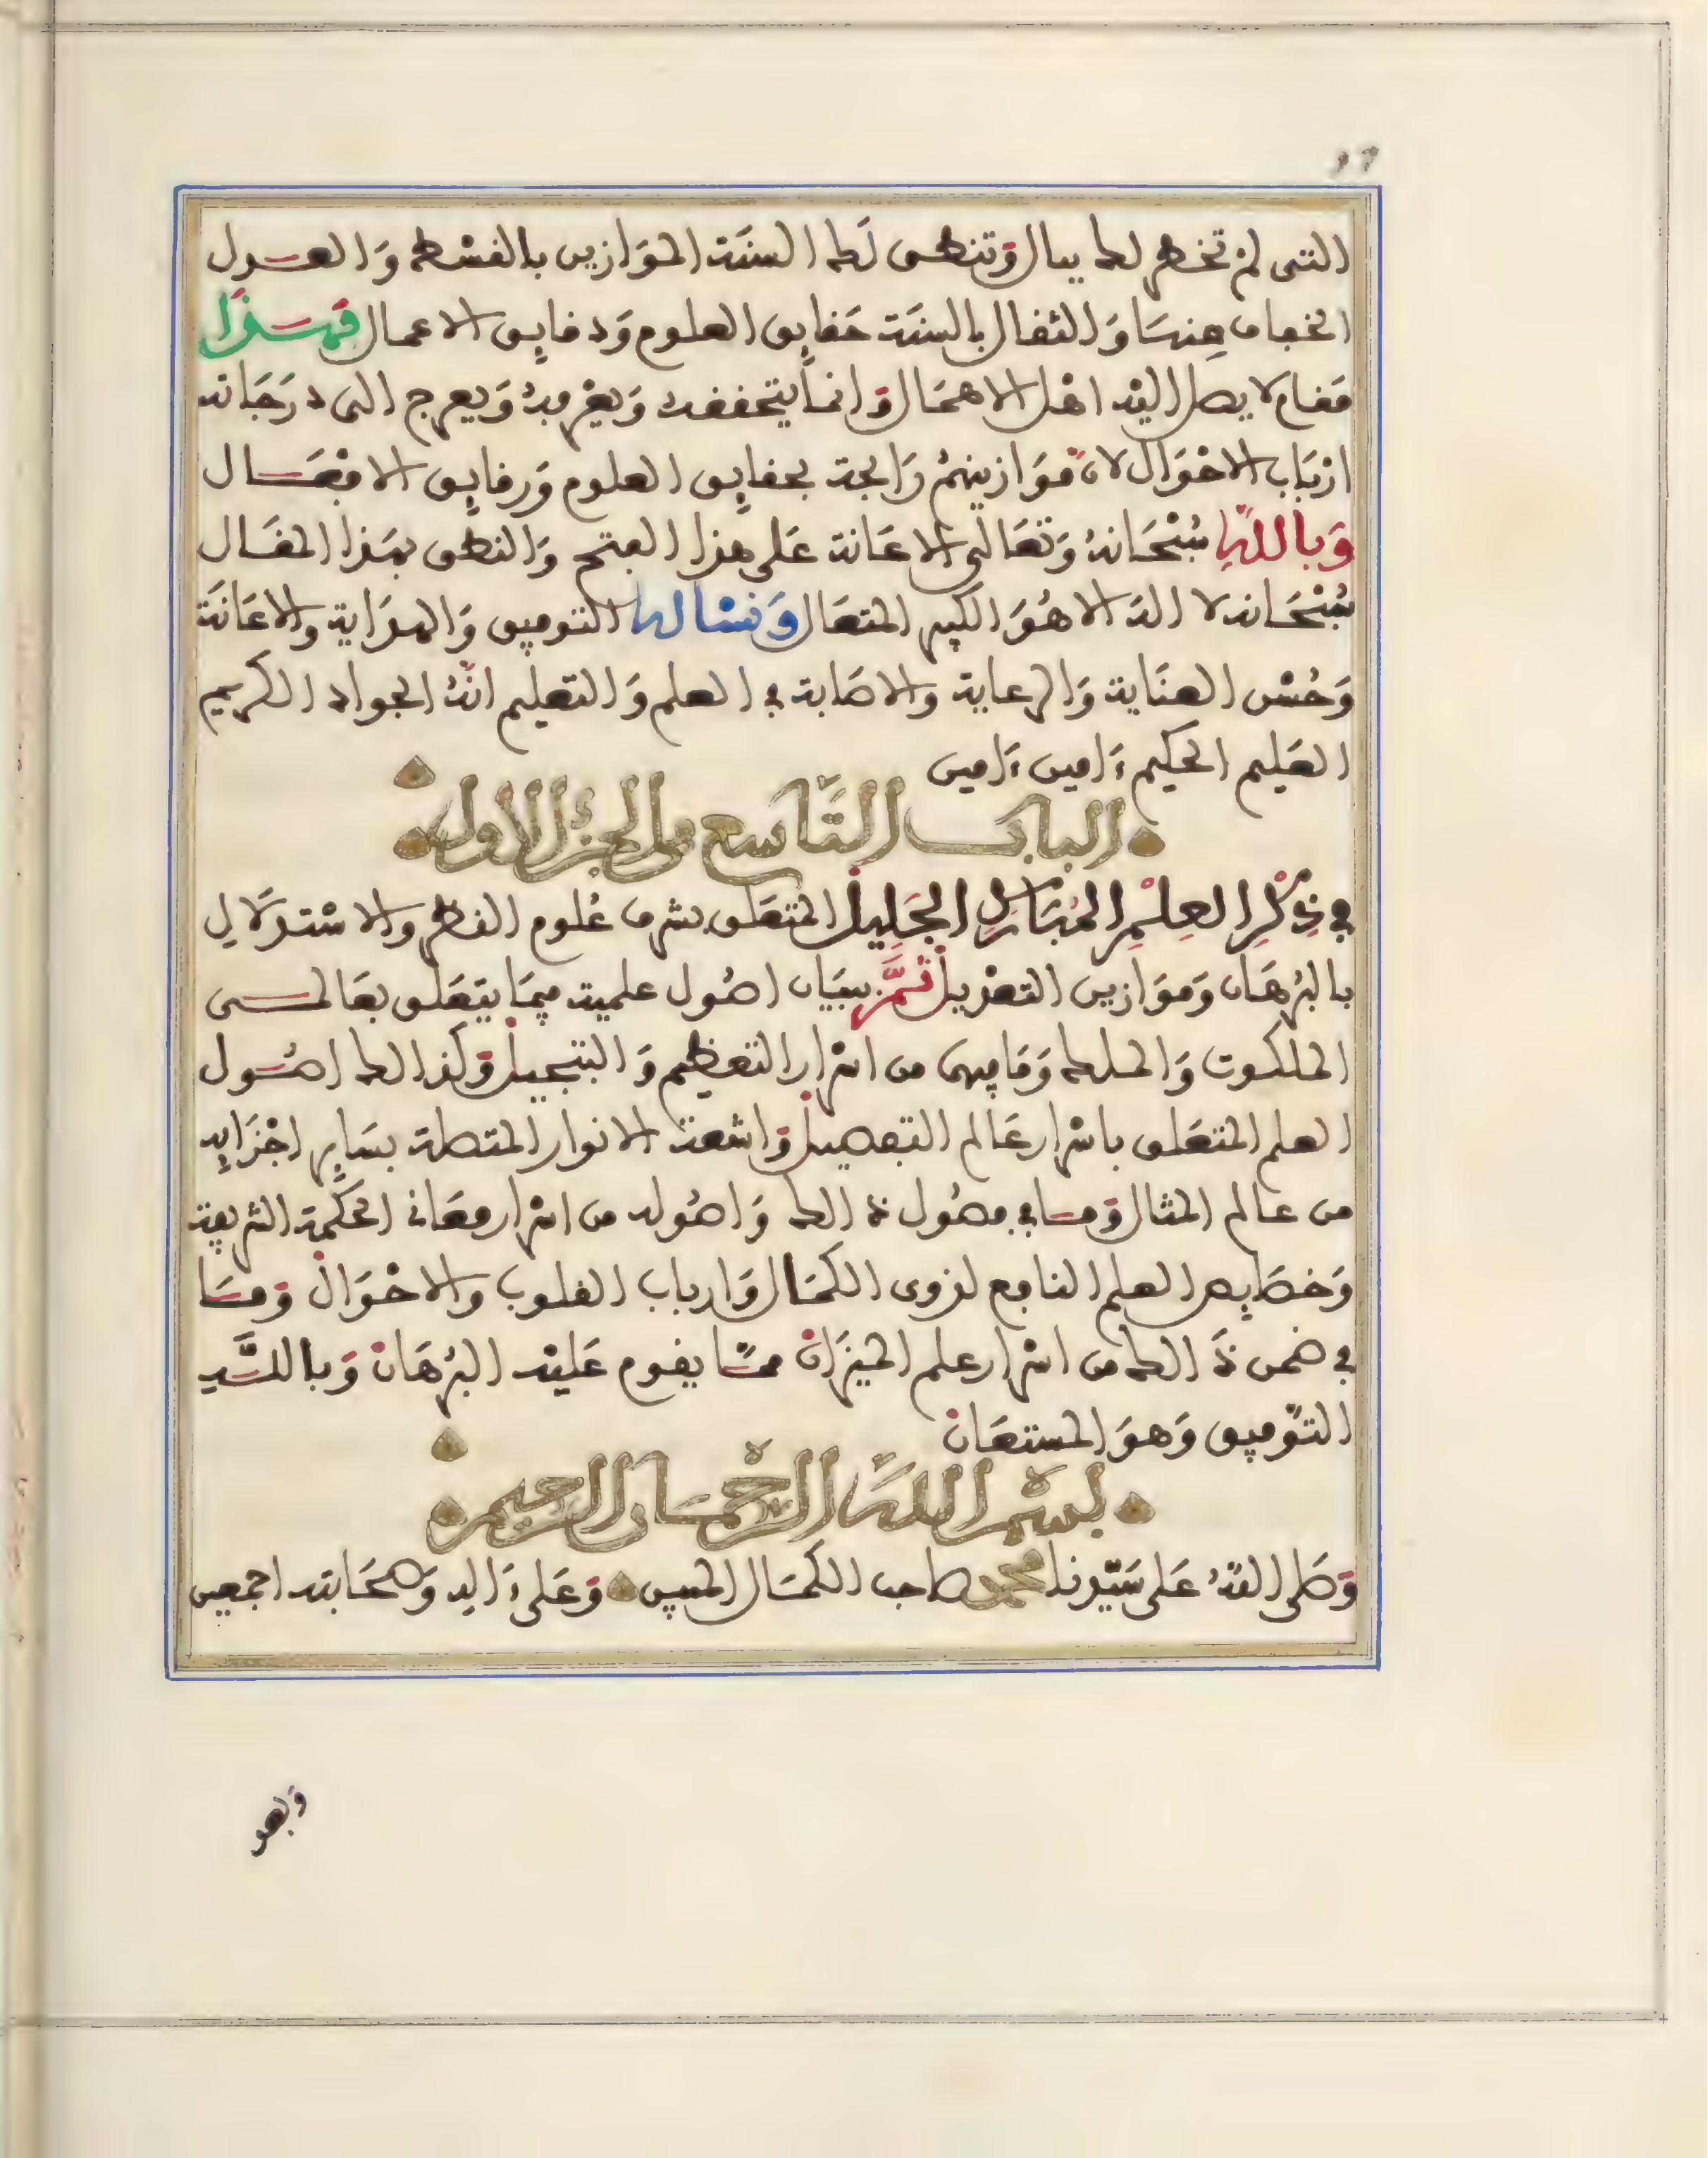 التى لم تخطر لك ببال وتنطق لك السنة الموازين بالقسط والعدل
الخفاف منها والثقال بالسنة حقايق العلوم ودقايق الاعمال فهذا
مقام لا يصل اليه اهل الاهمال وانما يتحققه ويعرفه ويعرج الى درجاته
ارباب الاحوال لان موازينهم راجحة بحقايق العلوم ورقايق الافعال
وبالله سبحانه وتعالى الاعانة على هذا الفتح والنطق بهذا المقال
سبحانه لا اله الا هو الكبير المتعال ونساله التوفيق والهداية والاعانة
وحسن العناية والرعاية والاصابة في العلم والتعليم انه الجواد الكريم
العليم الحكيم ءامين ءامين
الباب التاسع من الجزء الاول
في ذكر العلم المبارك الجليل المتعلق بشرف علوم النظر والاستدلال
بالبرهان وموازين التعديل ثم بيان اصول علمية فيما يتعلق بعالمى
الملكوت والملك وما فيهما من اسرار التعظيم والتبجيل وكذالك اصول
العلم المتعلق باسرار عالم التفصيل واشعة الانوار المتصلة بساير اجزايه
من عالم المثال وما في فصول ذالك واصوله من اسرار معانى الحكمة الشريفة
وخصايص العلم النافع لذوى الكمال وارباب القلوب والاحوال وما
في ضمن ذالك من اسرار علم الميزان مما يقوم عليه البرهان وبالله
التوفيق وهو المستعان
بسم الله الرحمان الرحيم
وصلى الله على سيدنا محمد صاحب الكمال المبين وعلى ءاله وصحابته اجمعين
وبعد